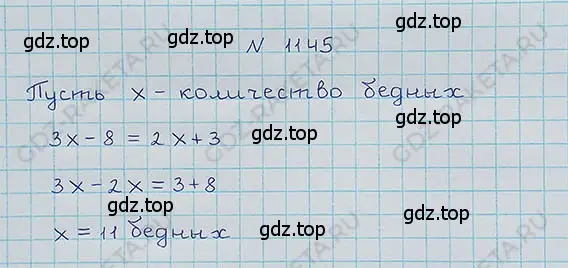 gdz.top gdz.top
N 1145
gdz.top
Пусть x - количество бедных
3x-8 = 2x+3 gdz.top
gdz.top
3x-2x = 3+8
gdz.top gdz.top
x = 11 бедных
gdz.top
GDZ-RAKETA.RU